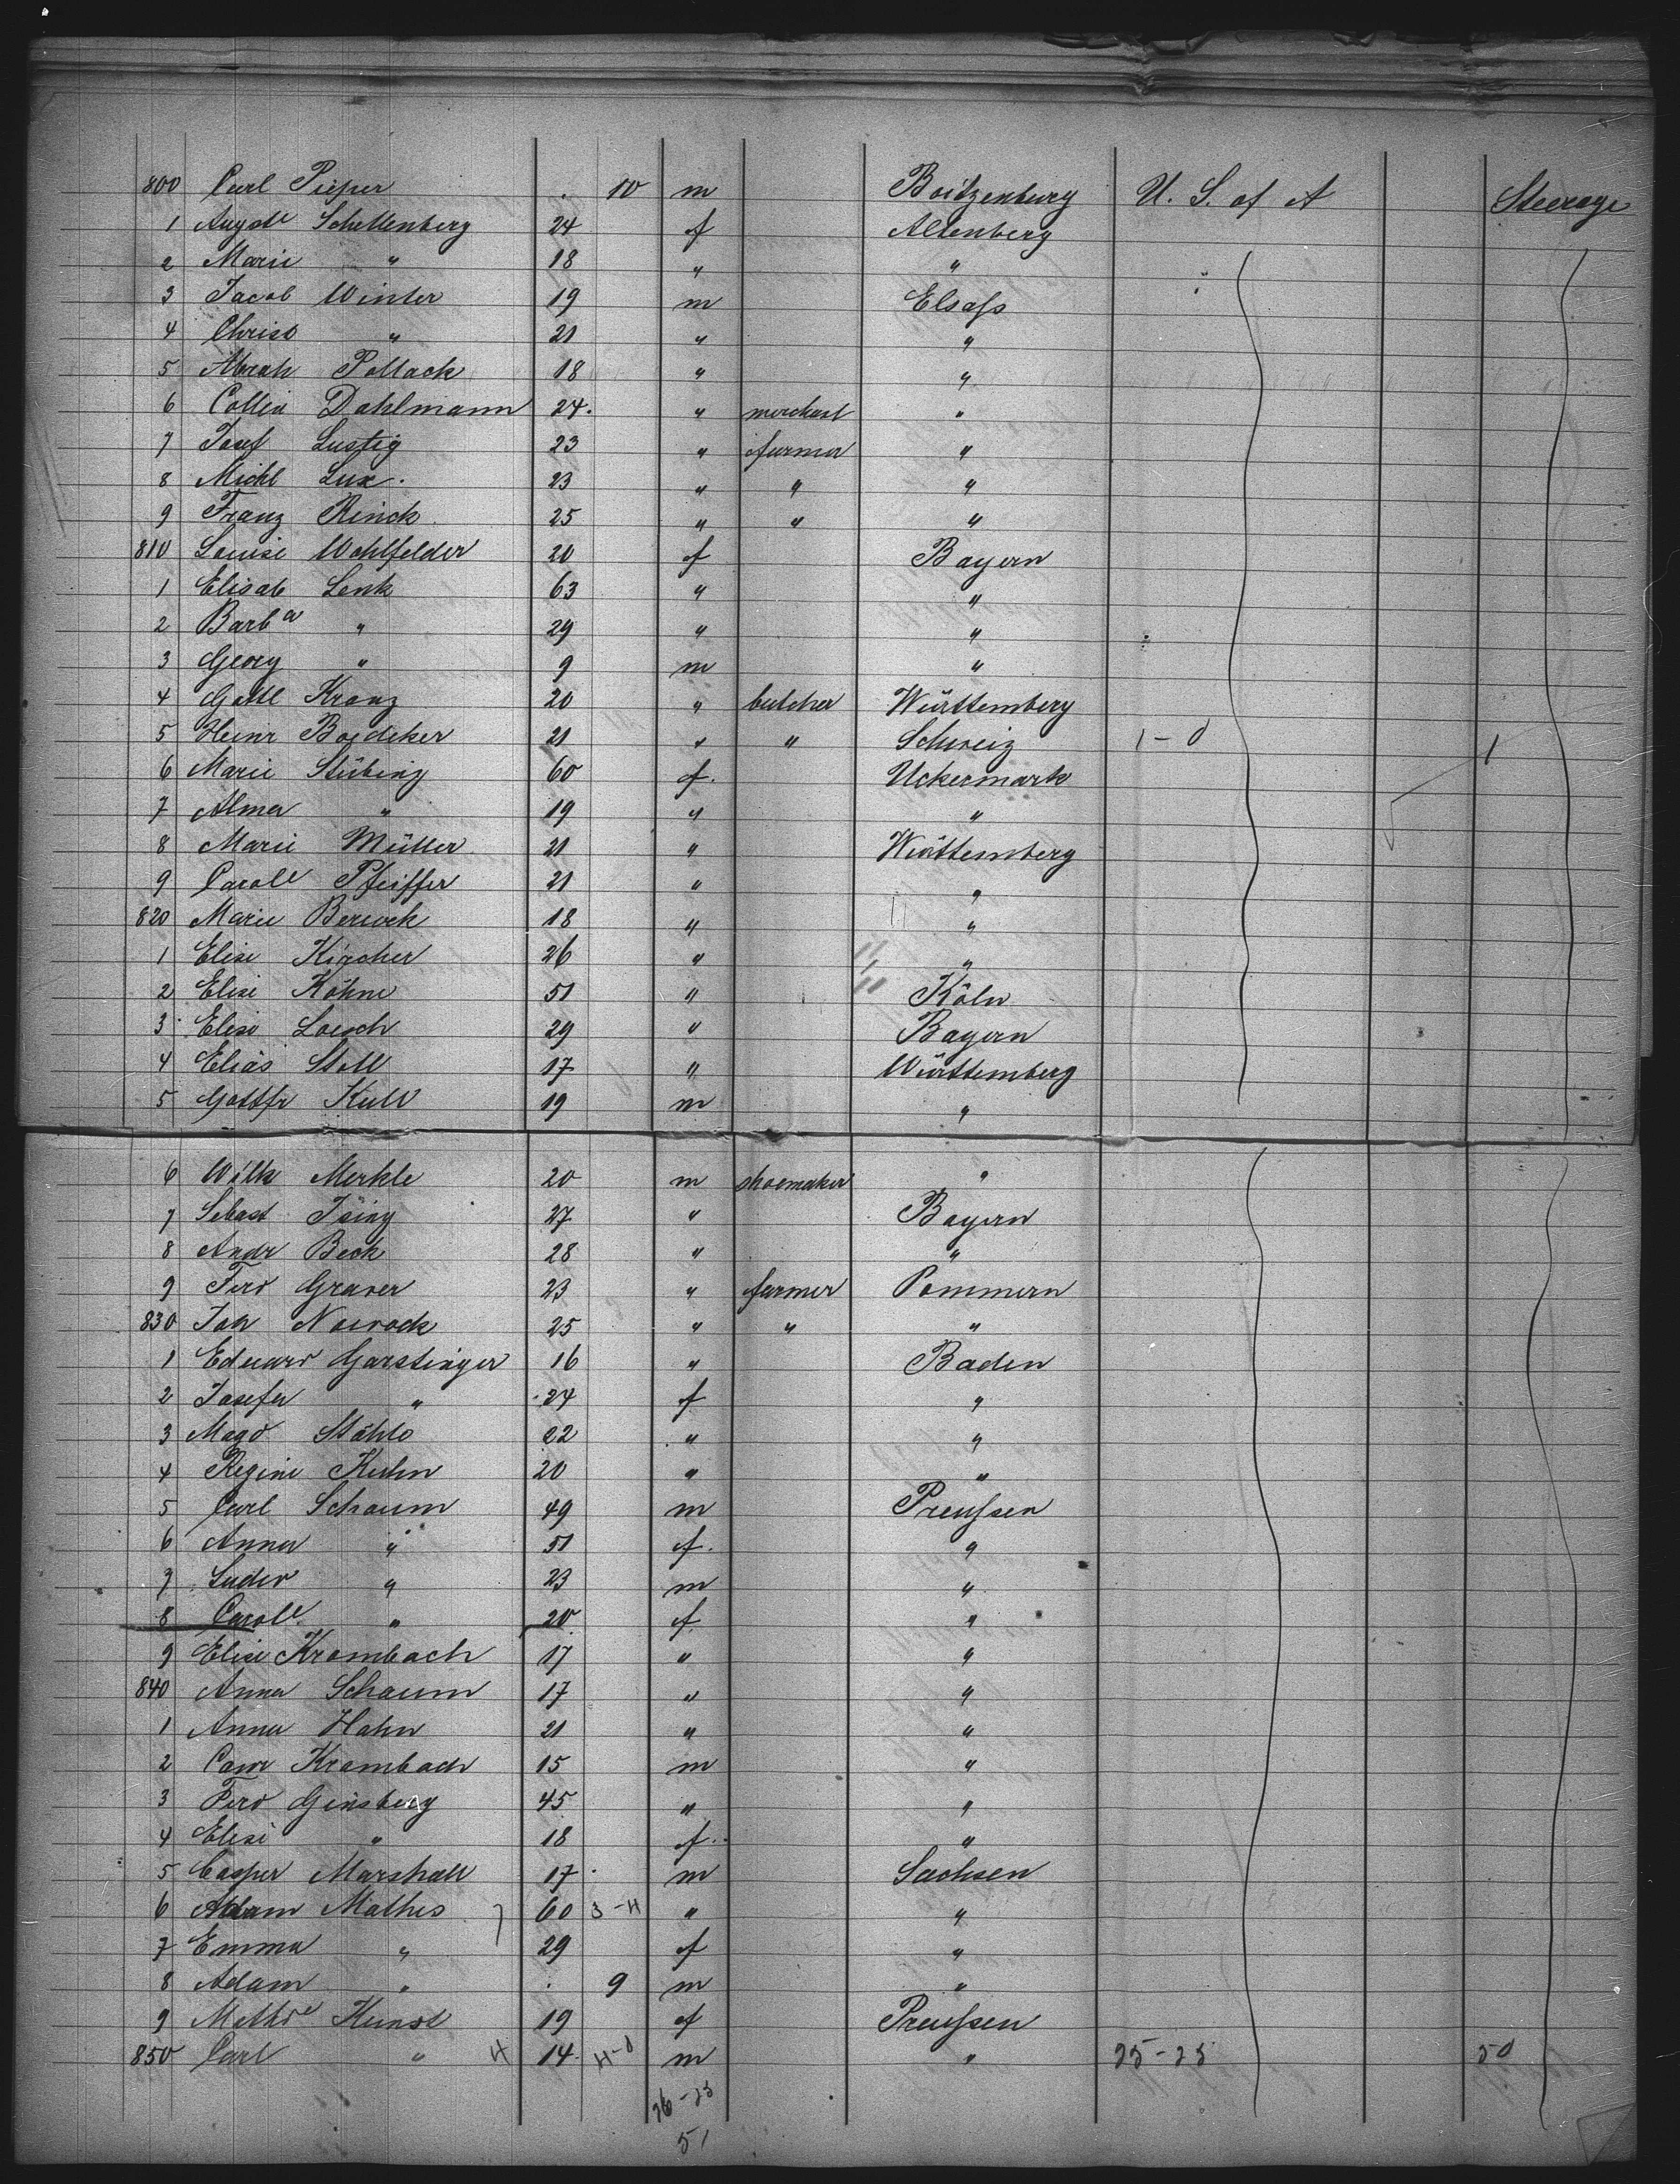 800 Carl Pieper 10 m Boitzenburg U. S. of A Steerage
1 Augste Schellenberg 24 f Altenberg
2 Marie " 18 " "
3 Jacob Winter 19 m Elsaß
4 Christ " 21 " "
5 Abrah Pollack 18 " "
6 Dahlmann 24 " merchant "
7 Josef Lustig 23 " farmer "
8 Michl Lux 23 " " "
9 Franz Rinck 25 " " "
810 Louise Wohlfelder 20 f Bayern
1 Elisab Lenk 63 " "
2 Barba " 29 " "
3 Georg " 9 m "
4 Gottl Kranz 20 " butcher Württemberg
5 Heinr Boediker 21 " " Schweiz 1-0 1
6 Marie Stübing 60 f. Uckermark
7 Alma " 19 " "
8 Marie Müller 21 " Württemberg
9 Carole Pfeiffer 21 " "
820 Marie 18 " "
1 Elise Kircher 26 " "
2 Elise Köhne 51 " Köln
3 Elise Loesch 29 " Bayern
4 Elias Stoll 17 " Württemberg
5 Gottfr Kull 19 m "
6 Wilh Merkle 20 m shoemaker "
7 Sebast 27 " Bayern
8 Andr Beck 28 " "
9 Ferd Graver 23 " farmer Pommern
830 Joh 25 " " "
1 Eduard Garstinger 16 " Baden
2 Josefa " 24 f "
3 Magd Stähle 22 " "
4 Regine Kuhn 20 " "
5 Carl Schaum 49 m Preußen
6 Anna " 51 f. "
7 " 23 m "
8 Carole " 20 f "
9 Elise Krombach 17 " "
840 Anna Schaum 17 " "
1 Anna Hahn 21 " "
2 Conr Krombach 15 m "
3 Ferd Ginsberg 45 " "
4 Elise " 18 f. "
5 Casper Marshall 17 m Sachsen
6 Adam Mathes 60 3-4 " "
7 Emma " 29 f "
8 Adam " 9 m "
9 Mathde Kunst 19 f Preußen
850 Carl " 4 14 4-0 m " 25-25 50
26-25
51